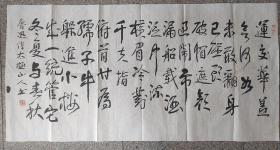 運交華盖
欲何求
未敢翻身
已碰頭
破帽遮顏
過鬧市
漏船載酒
泛中流
橫眉冷對
千夫指
俯首甘為
孺子牛
躲進小樓
成一統管它
冬夏与春秋
魯迅詩